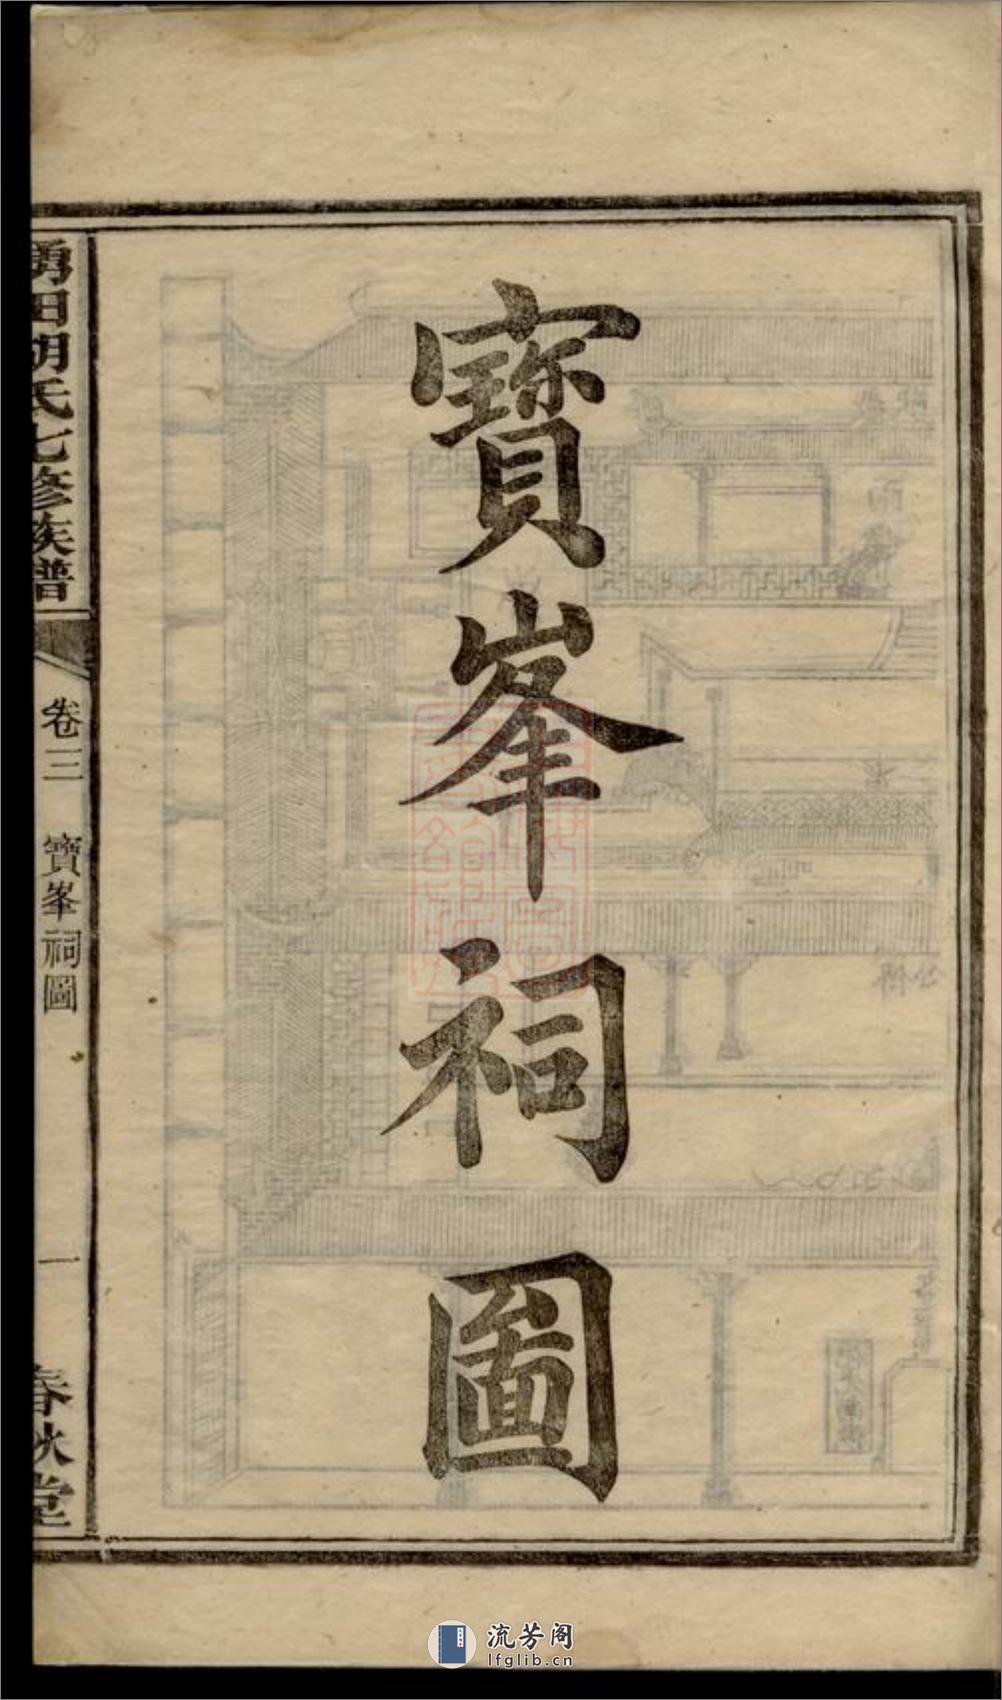 寶峯祠圖
田胡氏七修族譜
卷三 寶峯祠圖
一
春秋堂
流芳阁
lfglib.cn